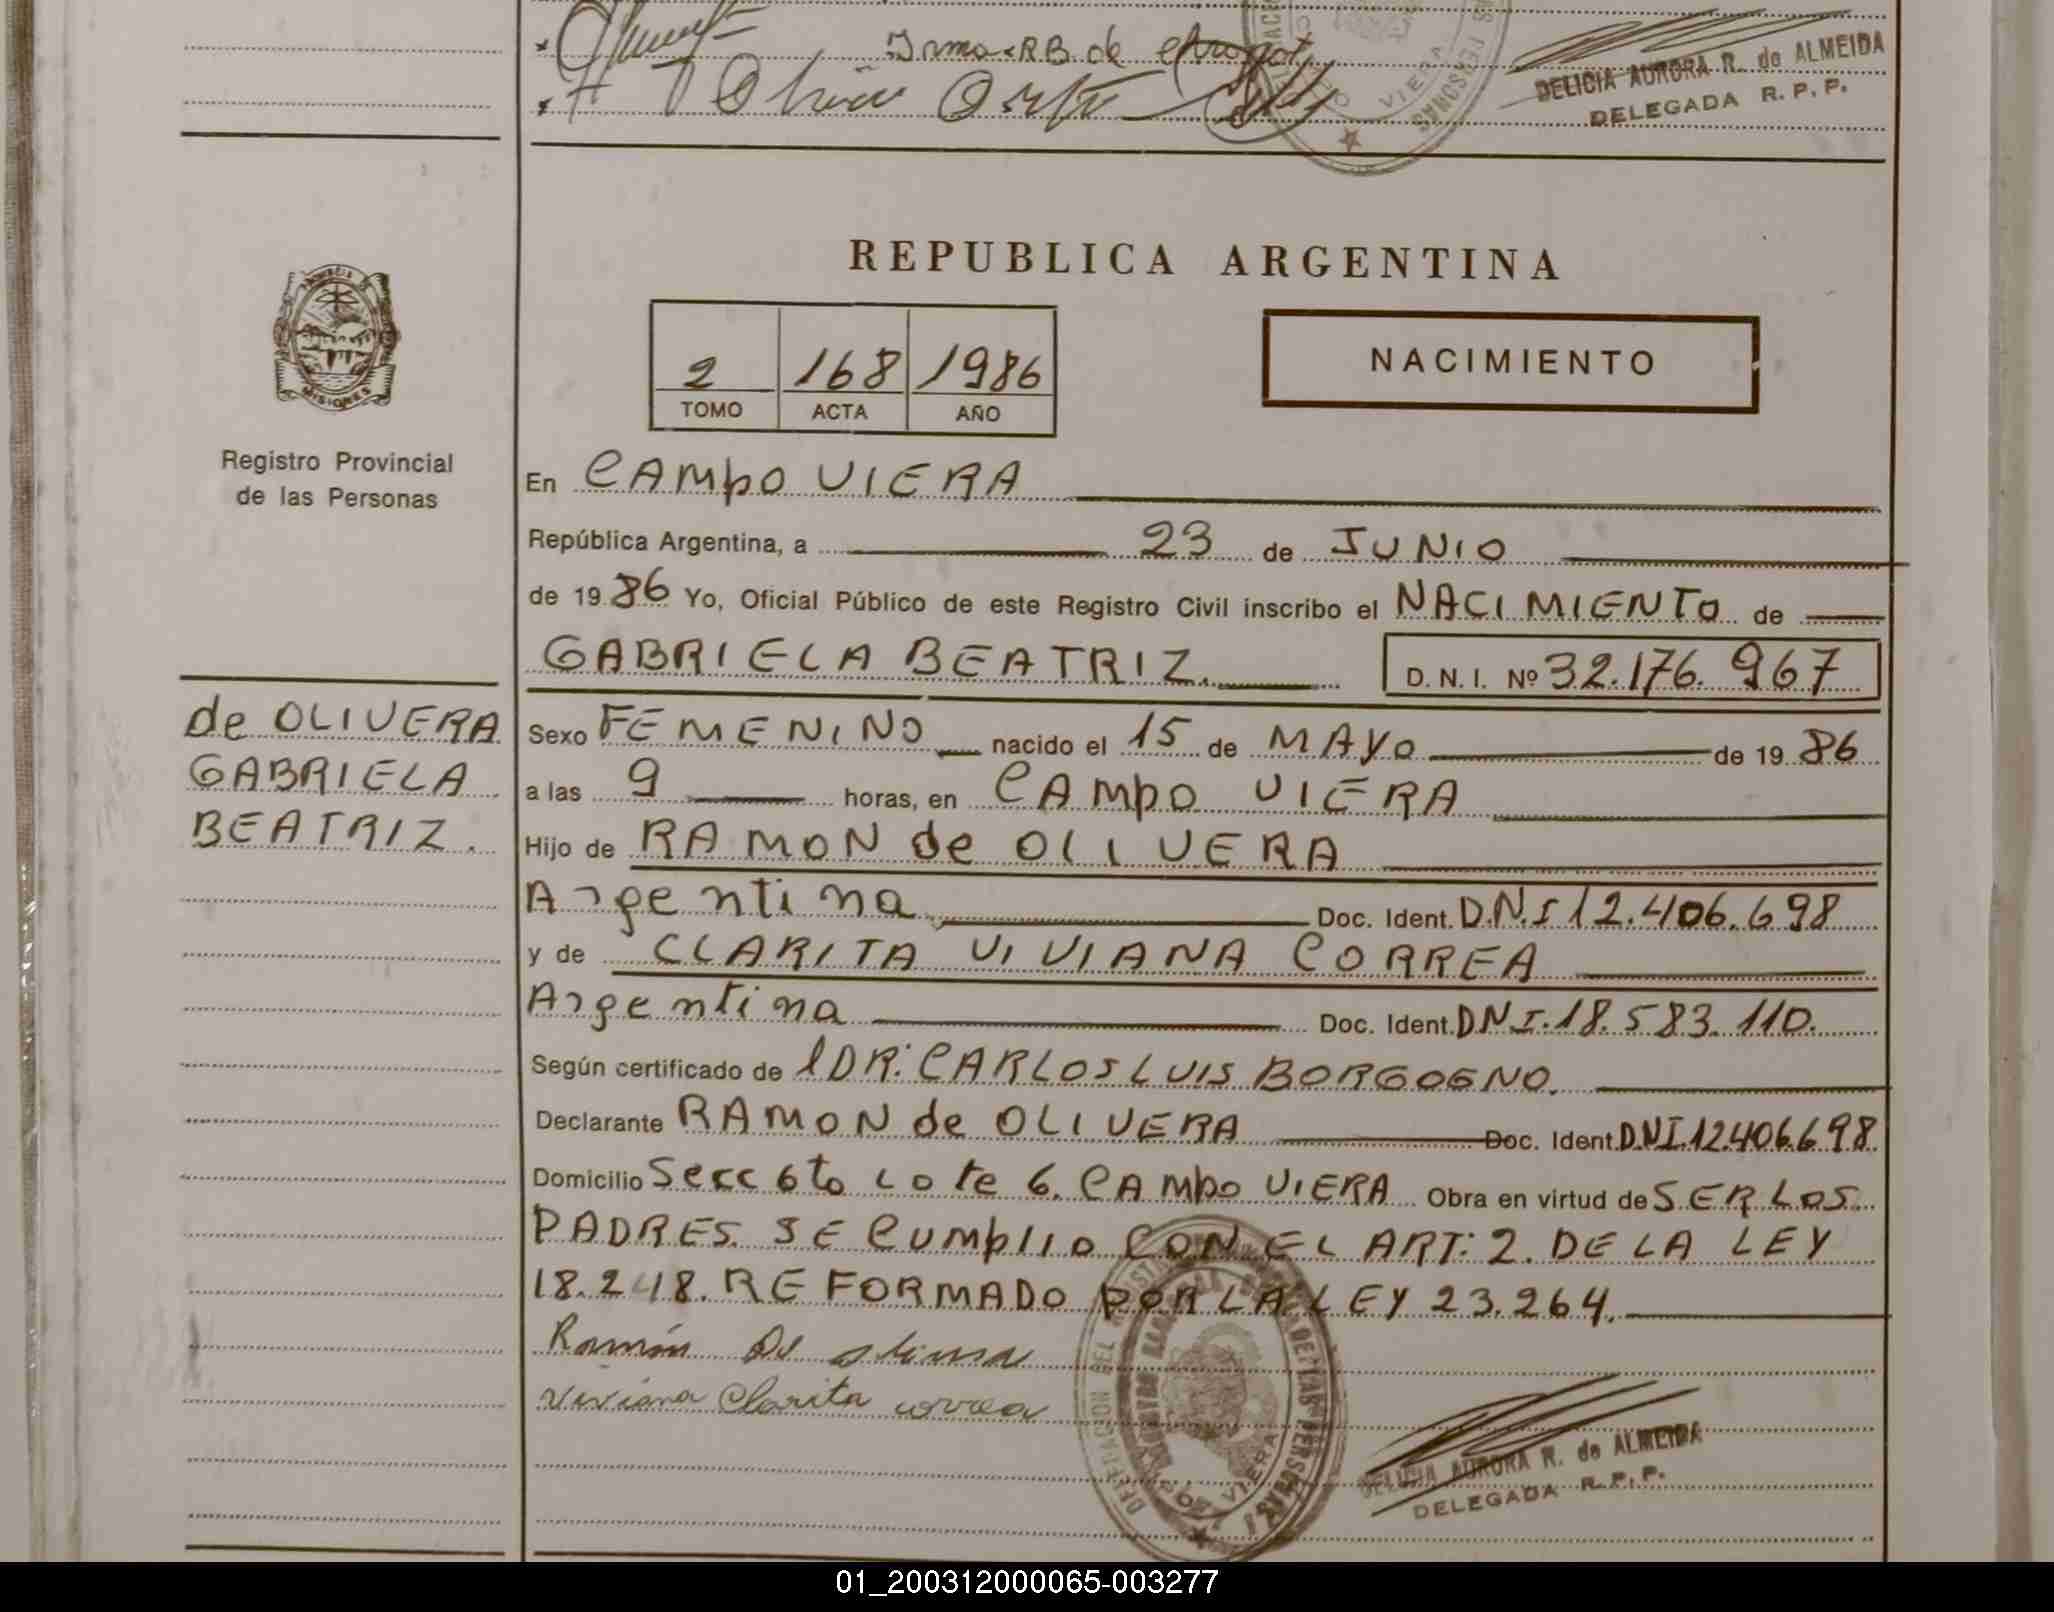 Irma R.B. de
DELICIA AURORA R. de ALMEIDA
DELEGADA R. P. P.
REPUBLICA ARGENTINA
2 168 1986
TOMO ACTA AÑO
NACIMIENTO
PROVINCIA DE
MISIONES
Registro Provincial
de las Personas
En CAMpO VIERA
República Argentina, a 23 de JUNIO
de 19 86 Yo, Oficial Público de este Registro Civil inscribo el NACIMIENTO de
GABRIELA BEATRIZ. D. N. I. Nº 32.176.967
de OLIVERA
GABRIELA
BEATRIZ.
Sexo FEMENINO nacido el 15 de MAYO de 19 86
a las 9 horas, en CAMpO VIERA
Hijo de RAMON de OLIVERA
Argentina Doc. Ident. D.N.I 12.406.698
y de CLARITA VIVIANA CORREA
Argentina Doc. Ident. DNI.18.583.110.
Según certificado de lDR: CARLOS LUIS BORGOGNO.
Declarante RAMON de OLIVERA Doc. Ident. DNI.12.406.698.
Domicilio Secc 6to Lote 6. CAMpO VIERA Obra en virtud de SER LOS
PADRES. SE CUMpLIO CON EL ART: 2. DE LA LEY
18.248. REFORMADO POR LA LEY 23.264.
Ramón De Olivera
Viviana Clarita correa
DELICIA AURORA R. de ALMEIDA
DELEGADA R. P. P.
01_200312000065-003277